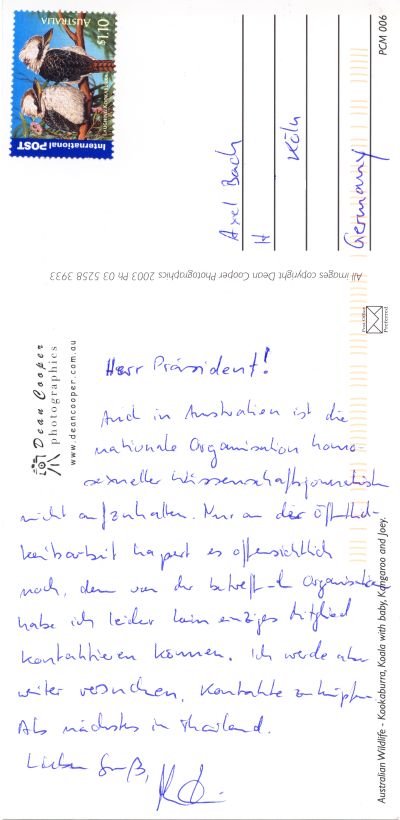 AUSTRALIA
$1.10
International POST
Axel Bach
H
Köln
Germany
PCM 006
All images copyright Dean Cooper Photographics 2003 Ph 03 5258 3933
Dean Cooper
photographics
www.deancooper.com.au
Preferred
Herr Präsident!
Auch in Australien ist die
nationale Organisation homo-
sexueller Wissenschaftsjournalisten
nicht aufzuhalten. Nur an der Öffentlich-
keitsarbeit hapert es offensichtlich
noch, denn von der betreffenden Organisation
habe ich leider kein einziges Mitglied
kontaktieren können. Ich werde aber
weiter versuchen, Kontakte zu knüpfen.
Als nächstes in Thailand.
Lieben Gruß,
Australian Wildlife - Kookaburra, Koala with baby, Kangaroo and Joey.